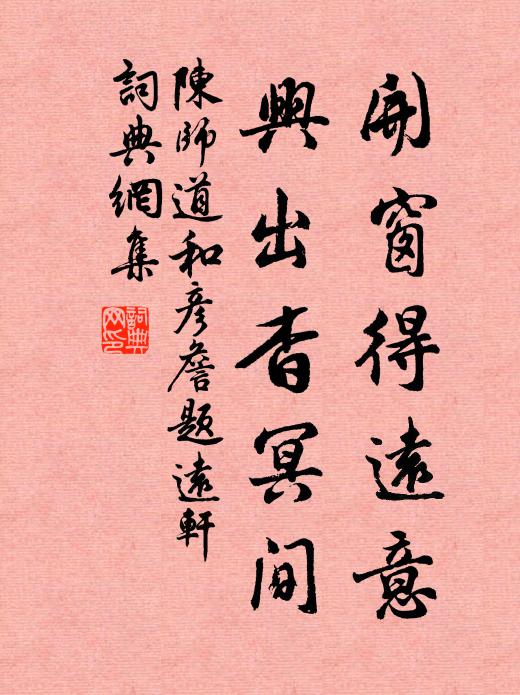 開窗得遠意
興出杳冥間
陳師道和彦詹題遠軒
詞典網集
詞典网印